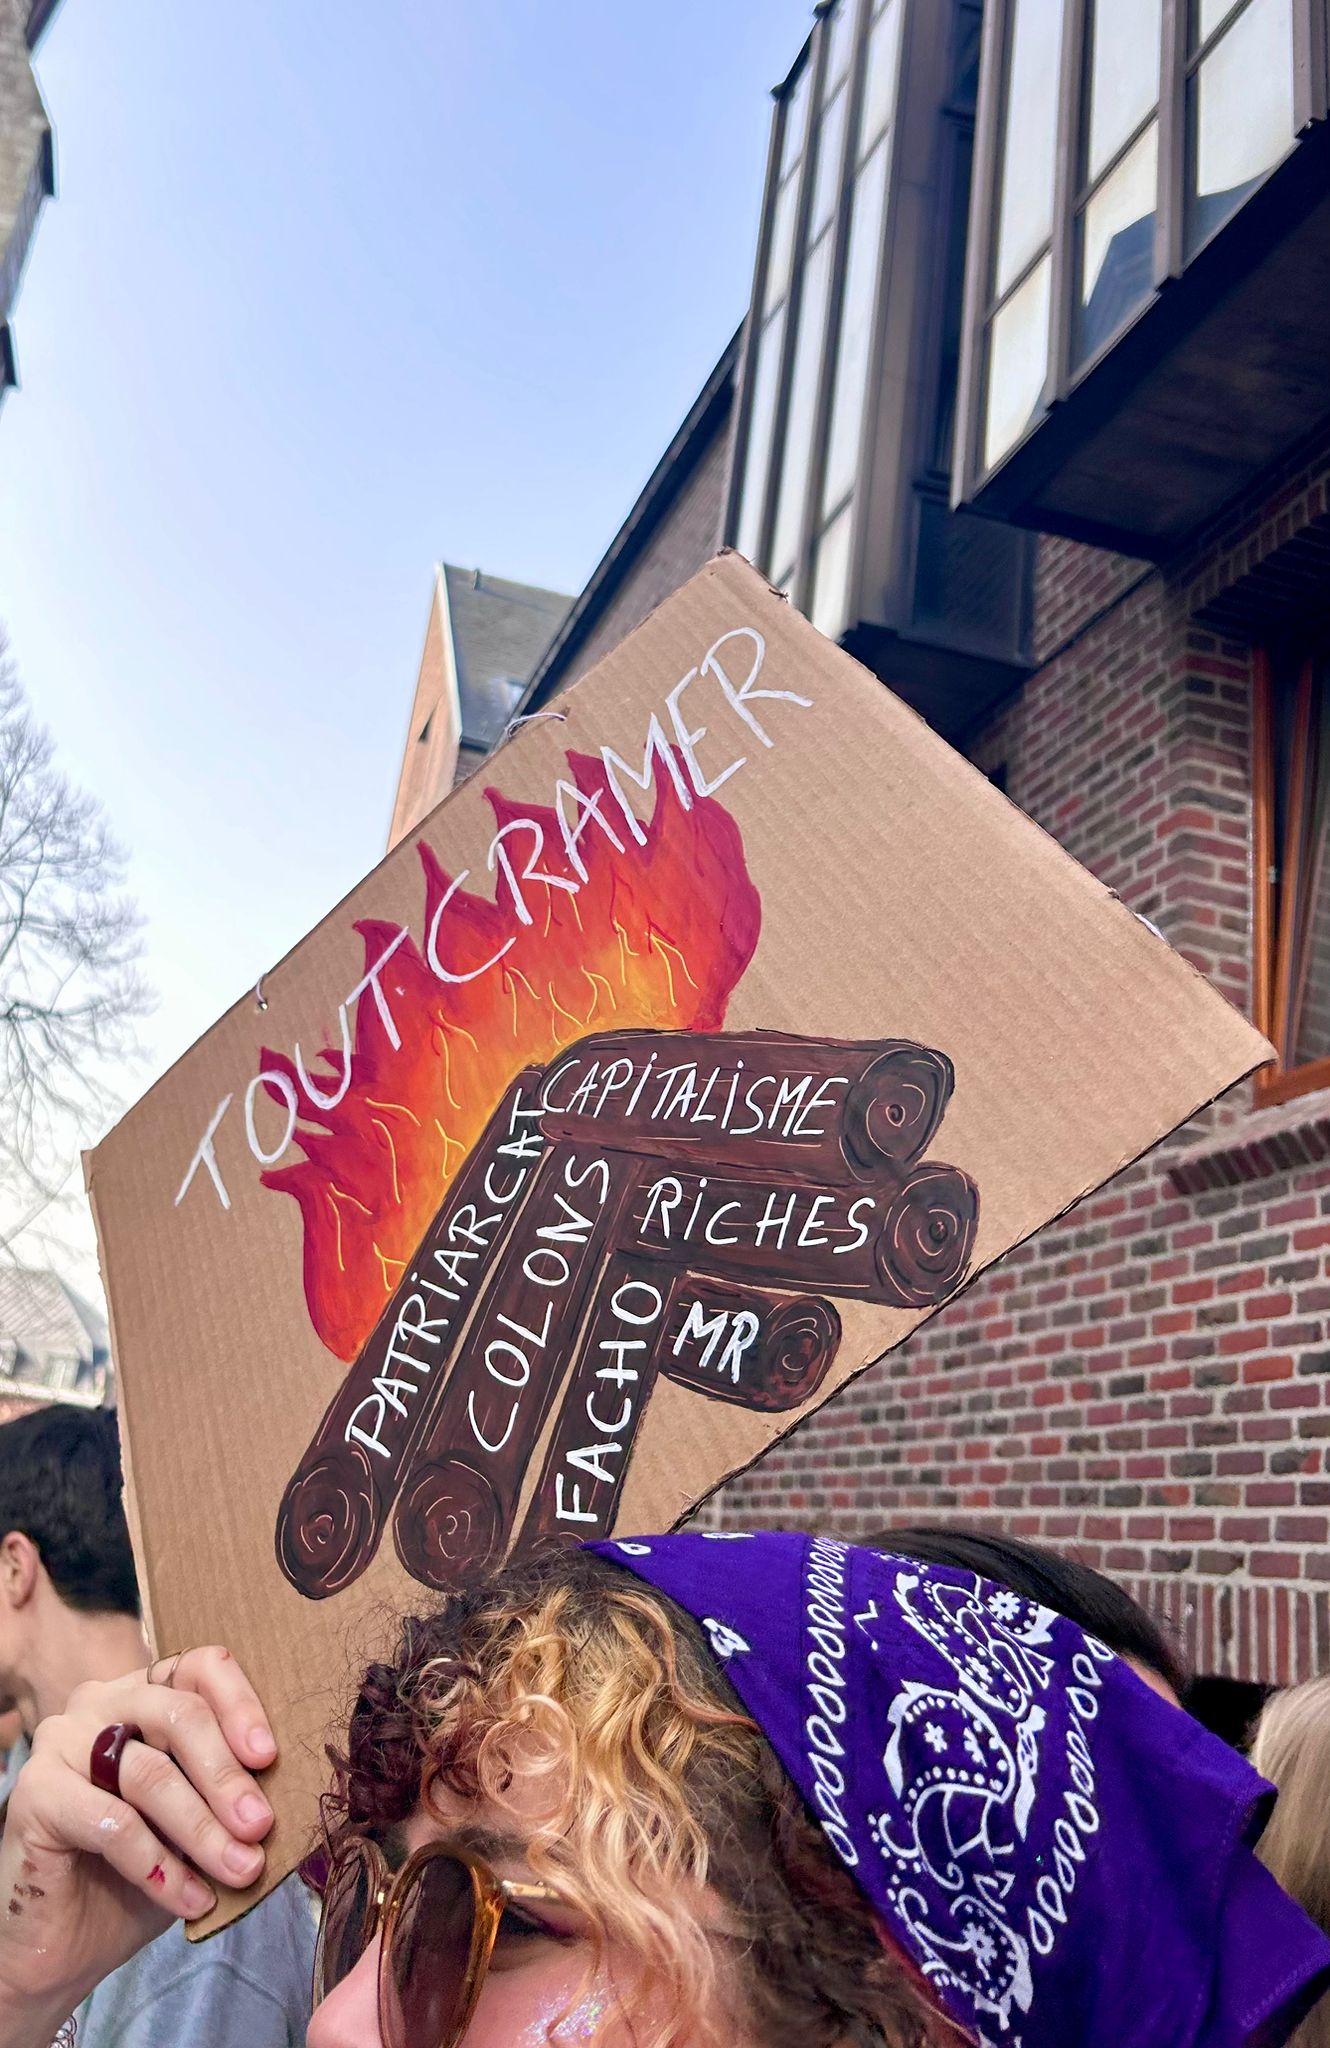 TOUT CRAMER
CAPiTALiSME
PATRiARCAT
COLONS
RiCHES
FACHO
MR